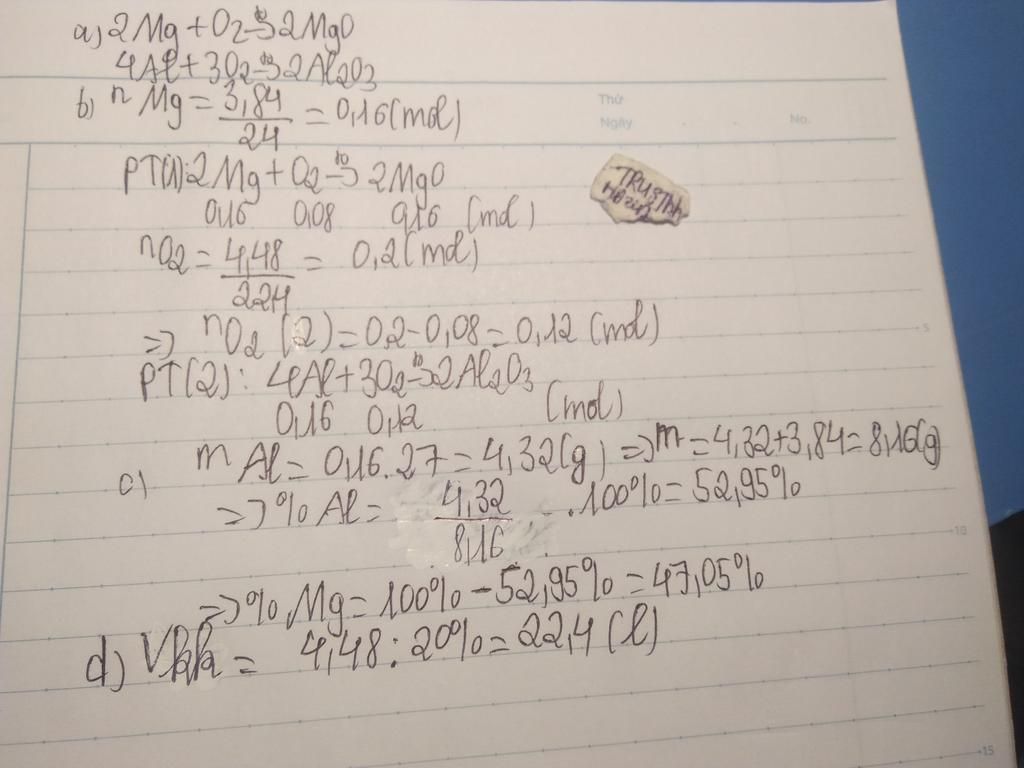 a) 2Mg + O2 →t° 2MgO
4Al + 3O2 →t° 2Al2O3
Thứ
Ngày
No.
b) n Mg = 3,84/24 = 0,16 (mol)
PT(1): 2Mg + O2 →t° 2MgO
0,16 0,08 0,16 (mol)
nO2 = 4,48/22,4 = 0,2 (mol)
=> nO2 (2) = 0,2 - 0,08 = 0,12 (mol)
PT(2): 4Al + 3O2 →t° 2Al2O3
0,16 0,12 (mol)
c) m Al = 0,16.27 = 4,32 (g) => m = 4,32+3,84 = 8,16 (g)
=> % Al = 4,32/8,16 .100% = 52,95%
=> % Mg = 100% - 52,95% = 47,05%
d) Vkk = 4,48 : 20% = 22,4 (l)
5
10
15